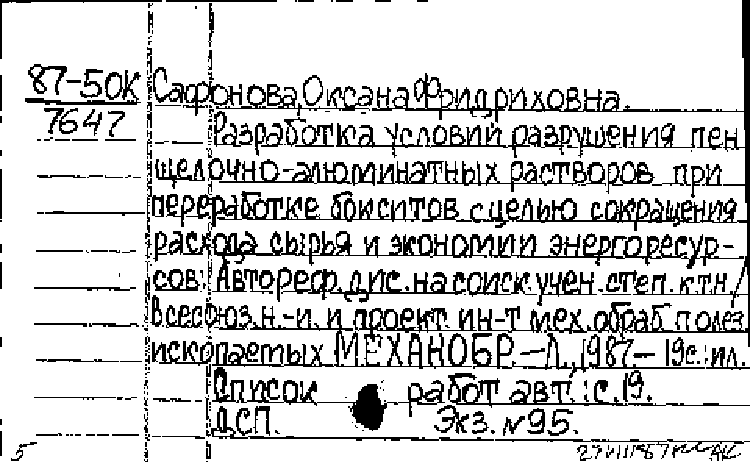 87-50К Сафонова, Оксана Фридриховна.
7647 Разработка условий разрушения пен
щелочно-алюминатных растворов при
переработке бокситов с целью сокращения
расхода сырья и экономии энергоресур-
сов: Автореф. дис. на соиск. учен. степ. к.т.н. /
Всесоюз. н.-и. и проект. ин-т мех. обраб. полез.
ископаемых МЕХАНОБР. – Л., 1987. – 19с.: ил.
Список работ авт.: с.19.
ДСП. Экз. №95.
5